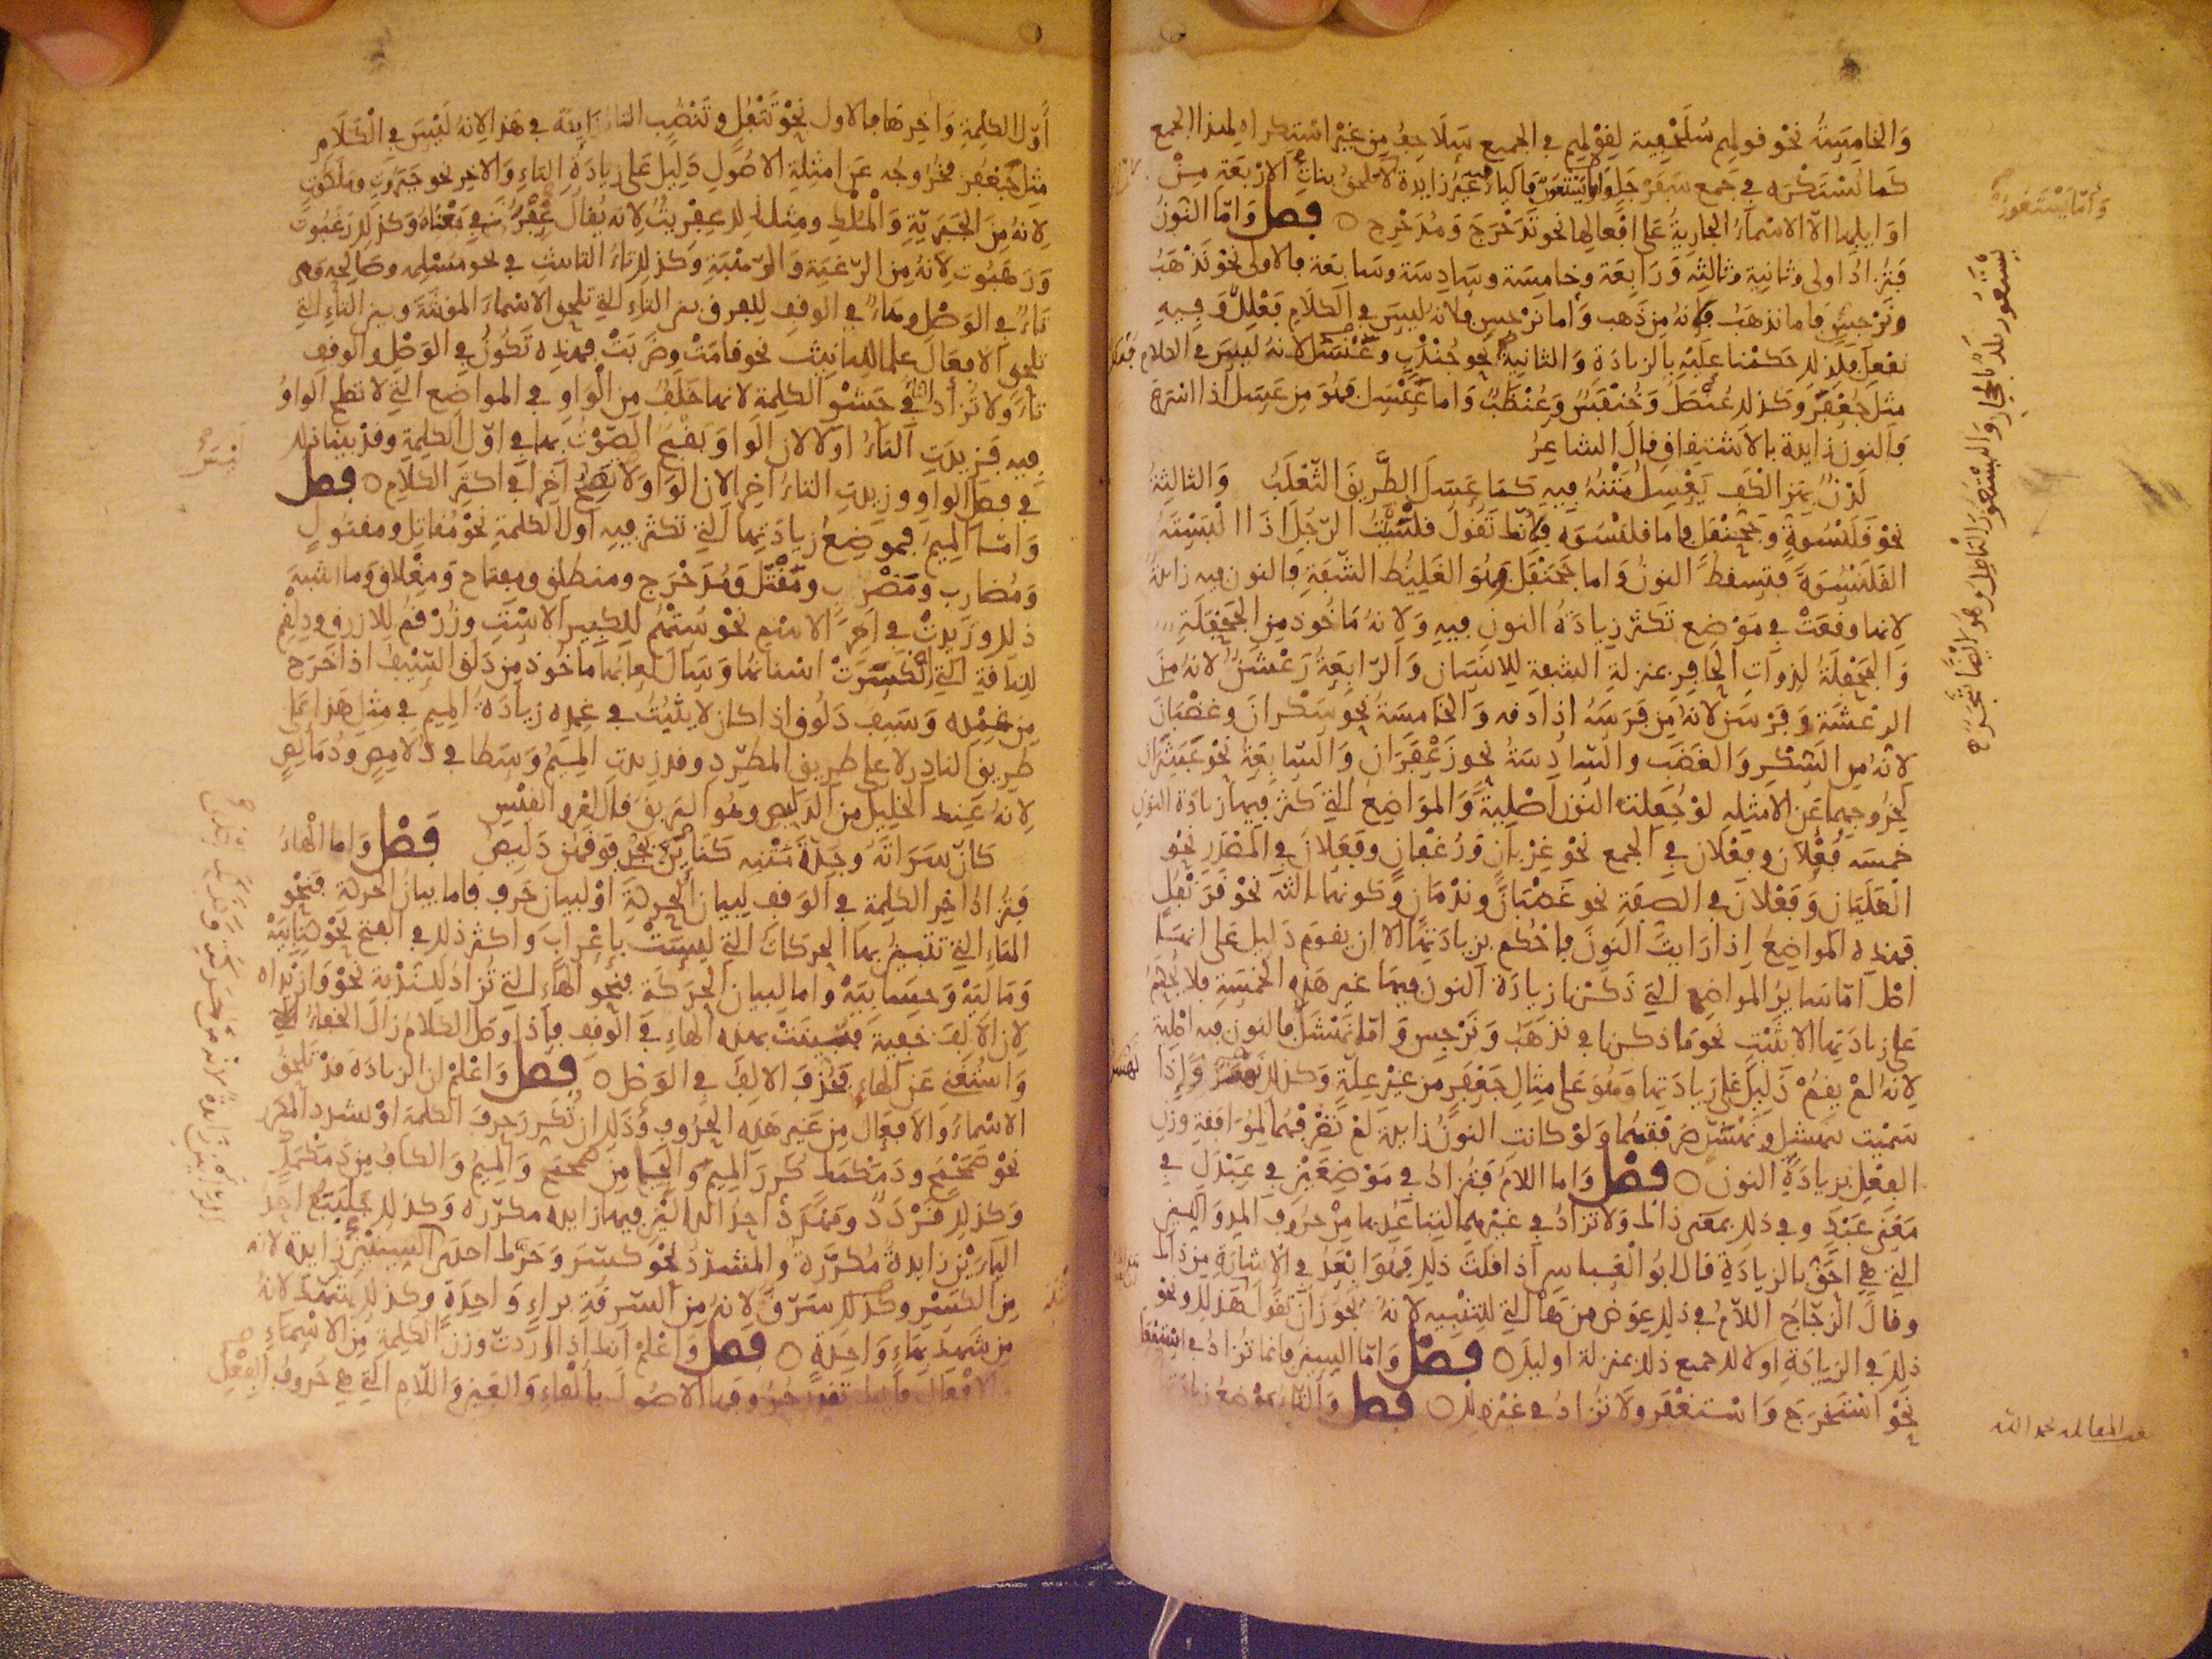 والخامسة نحو قولهم سلحفية لقولهم في الجميع سلاحف من غير استكراه لهذا الجمع
كما تستكره في جمع سفرجل واما يستعور فالياء غير زايدة لا تلحق بنات الاربعة من
اوايلها الا الاسماء الجارية على افعالها نحو تدحرج ومدحرج فصل واما النون
فتزاد اولى وثانية وثالثة ورابعة وخامسة وسادسة وسابعة فالاولى نحو نذهب
ونرجس فاما نذهب فلانه من ذهب واما نرجس فلانه ليس في الكلام فعلل وفيه
نفعل فلذلك حكمنا عليه بالزيادة والثانية نحو جندب وعنسل لانه ليس في الكلام
مثل جعفر وكذلك عنصل وخنفس وعنظب واما عنسل فهو من عسل اذا اسرع
فالنون زايدة بالاشتقاق قال الشاعر
لدن بهز الكف يعسل متنه فيه كما عسل الطريق الثعلب والثالثة
نحو قلنسوة وجحنفل فاما قلنسوه فلانك تقول قلسيت الرجل اذا البسته
القلنسوة فتسقط النون واما جحنفل وهو الغليظ الشفة فالنون فيه زايدة
لانها وقعت في موضع تكثر زيادة النون فيه ولانه ماخوذ من الجحفلة
والجحفلة لذوات الحافر بمنزلة الشفة للانسان والرابعة رعشن لانه من
الرعشة وفرسن لانه من فرسه اذا دقه والخامسة نحو سكران وغضبان
لانه من السكر والغضب والسادسة نحو زعفران والسابعة نحو عبيثران
لخروجهما عن الامثله لو جعلت النون اصلية والمواضع التي كثر فيها زيادة النون
خمسه فعلان وفعلان في الجمع نحو غربان ورغفان وفعلان في المصدر نحو
الغليان وفعلان في الصفة نحو غضبان وندمان وكونها ثالثة نحو قرنفل
فهذه المواضع اذا رايت النون فاحكم بزيادتها الا ان يقوم دليل على انها
اصل اما ساير المواضع التي ذكرنا زيادة النون فيها غير هذه الخمسة فلا
على زيادتها الا بثبت نحو ما ذكرنا في نذهب ونرجس واما نهشل فالنون فيه اصلية
لانه لم يقم دليل على زيادتها وهو على مثال جعفر من غير علة وكذلك نهسر واذا
سميت بنهشل ونهسر صرفتهما ولو كانت النون زايدة لم تصرفهما لموافقة وزن
الفعل بزيادة النون فصل واما اللام فتزاد في موضعين في عبدل في
معنى عبد وفي ذلك بمعنى ذاك ولا تزاد في غيرهما لبعدها من حروف المد واللين
التي هي احق بالزيادة قال ابو العباس اذا قلت ذلك فهو ابعد في الاشارة من ذاك
وقال الزجاج اللام في ذلك عوض من ها التي للتنبيه لانه لا يجوز ان تقول هذلك ونحو
ذلك في الزيادة اولالك جميع ذلك بمنزلة اوليك فصل واما السين فانما تزاد في استفعل
نحو استخرج واستغفر ولا تزاد في غير ذلك فصل والتاء موضع زيادتها
واما يستعور
يستعور بلد بالحجاز واليستعور الباطل وهو ايضا شجر صح
اول الكلمة واخرها فالاول نحو تتفل وتنضب التاء زايدة في هذا لانه ليس في الكلام
مثل جعفر فخروجه عن امثلة الاصول دليل على زيادة التاء والاخر نحو جبروت وملكوت
لانه من الجبرية والملك ومثله لك عفريت لانه يقال عفر في معناه وكذلك رغبوت
ورهبوت لانه من الرغبة والرهبة وكذلك تاء التانيث في نحو مسلمه وصالحه وهي
تاء في الوصل وهاء في الوقف للفرق بين التاء التي تلحق الاسماء المونثة وبين التاء التي
تلحق الافعال علما للتانيث نحو قامت وضربت فهذه تكون في الوصل والوقف
تاء ولا تزاد التاء في حشو الكلمة لانها خلف من الواو في المواضع التي لا تصلح الواو
فيه فزيدت التاء اولا لان الواو يقبح الصوت بها في اول الكلمة وقد بينا ذلك
في فصل الواو وزيدت التاء اخرا لان الواو لا تصح اخرا في اكثر الكلام فصل
واما الميم فموضع زيادتها التي تكثر فيه اول الكلمة نحو مقاتل ومقتول
ومضارب ومضرب ومقتل ومدحرج ومنطلق ومفتاح ومغلاق وما اشبه
ذلك وزيدت في اخر الاسم نحو ستهم للكبير الاست وزرقم للازرق ودلقم
للناقة التي انكسرت اسنانها وسال لعابها ماخوذ من دلق السيف اذا خرج
من غمده وسيف دلوق اذا كان لا يثبت في غمده زيادة الميم في مثل هذا على
طريق النادر لا على طريق المطرد وقد زيدت الميم وسطا في دلامص ودمالص
لانه عند الخليل من الدليص وهو البريق قال امرو القيس
كان سراته وجدة متنه كنائن يجري فوقهن دليص فصل واما الهاء
فتزاد اخر الكلمة في الوقف لبيان الحركة او لبيان حرف فاما بيان الحركة فنحو
الهاء التي تتبين بها الحركات التي ليست باعراب واكثر ذلك في الفتح نحو كتابيه
وماليه وحسابيه واما لبيان الحركة فنحو الهاء التي تزاد للندبة نحو وا زيداه
لان الالف خفية فتبينت بهذه الهاء في الوقف فاذا وصل الكلام زال الخفاء
واستغني عن الهاء فحذف الالف في الوصل فصل واعلم ان الزيادة قد تلحق
الاسماء والافعال من غير هذه الحروف وذلك ان تكرر حرف الكلمة او تشدد المكرر
نحو صمحمح ودمكمك كرر الميم والحاء من صمحمح والميم والكاف من دمكمك
وكذلك قردد ومهدد احد الدالين فيهما زايدة مكررة وكذلك جلبب احد
الباءين زايدة مكررة والمشدد نحو كسر وخرط احدى السينين زايدة لانه
من الكسر وكذلك سرق لانه من السرقة براء واحدة وكذلك
من بهاء واحدة فصل واعلم انك اذا اردت وزن الكلمة من الاسماء
والافعال فانما تقدر حروفها الاصول بالفاء والعين واللام التي هي حروف الفعل